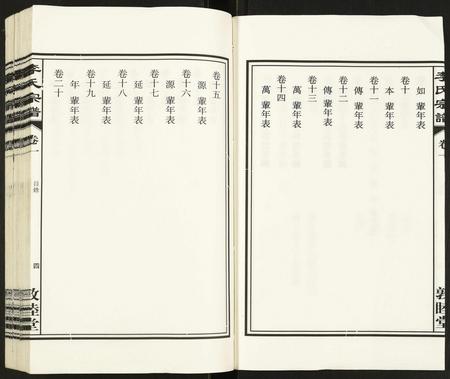 李氏宗譜
卷一
敦睦堂
如輩年表
卷十
本輩年表
卷十一
傳輩年表
卷十二
傳輩年表
卷十三
萬輩年表
卷十四
萬輩年表
卷十五
源輩年表
卷十六
源輩年表
卷十七
延輩年表
卷十八
延輩年表
卷十九
年輩年表
卷二十
李氏宗譜
卷一
目錄
四
敦睦堂